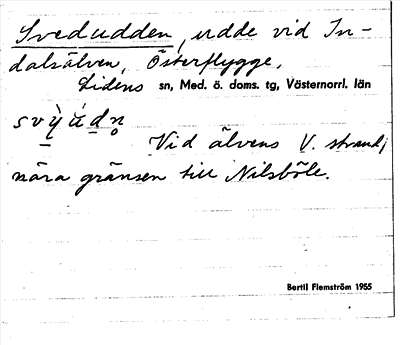 Svedudden, udde vid In-
dalsälven, Österflygge,
Lidens sn, Med. ö. doms. tg, Västernorrl. län
Vid älvens V. strand,
nära gränsen till Nilsböle.
Bertil Flemström 1955